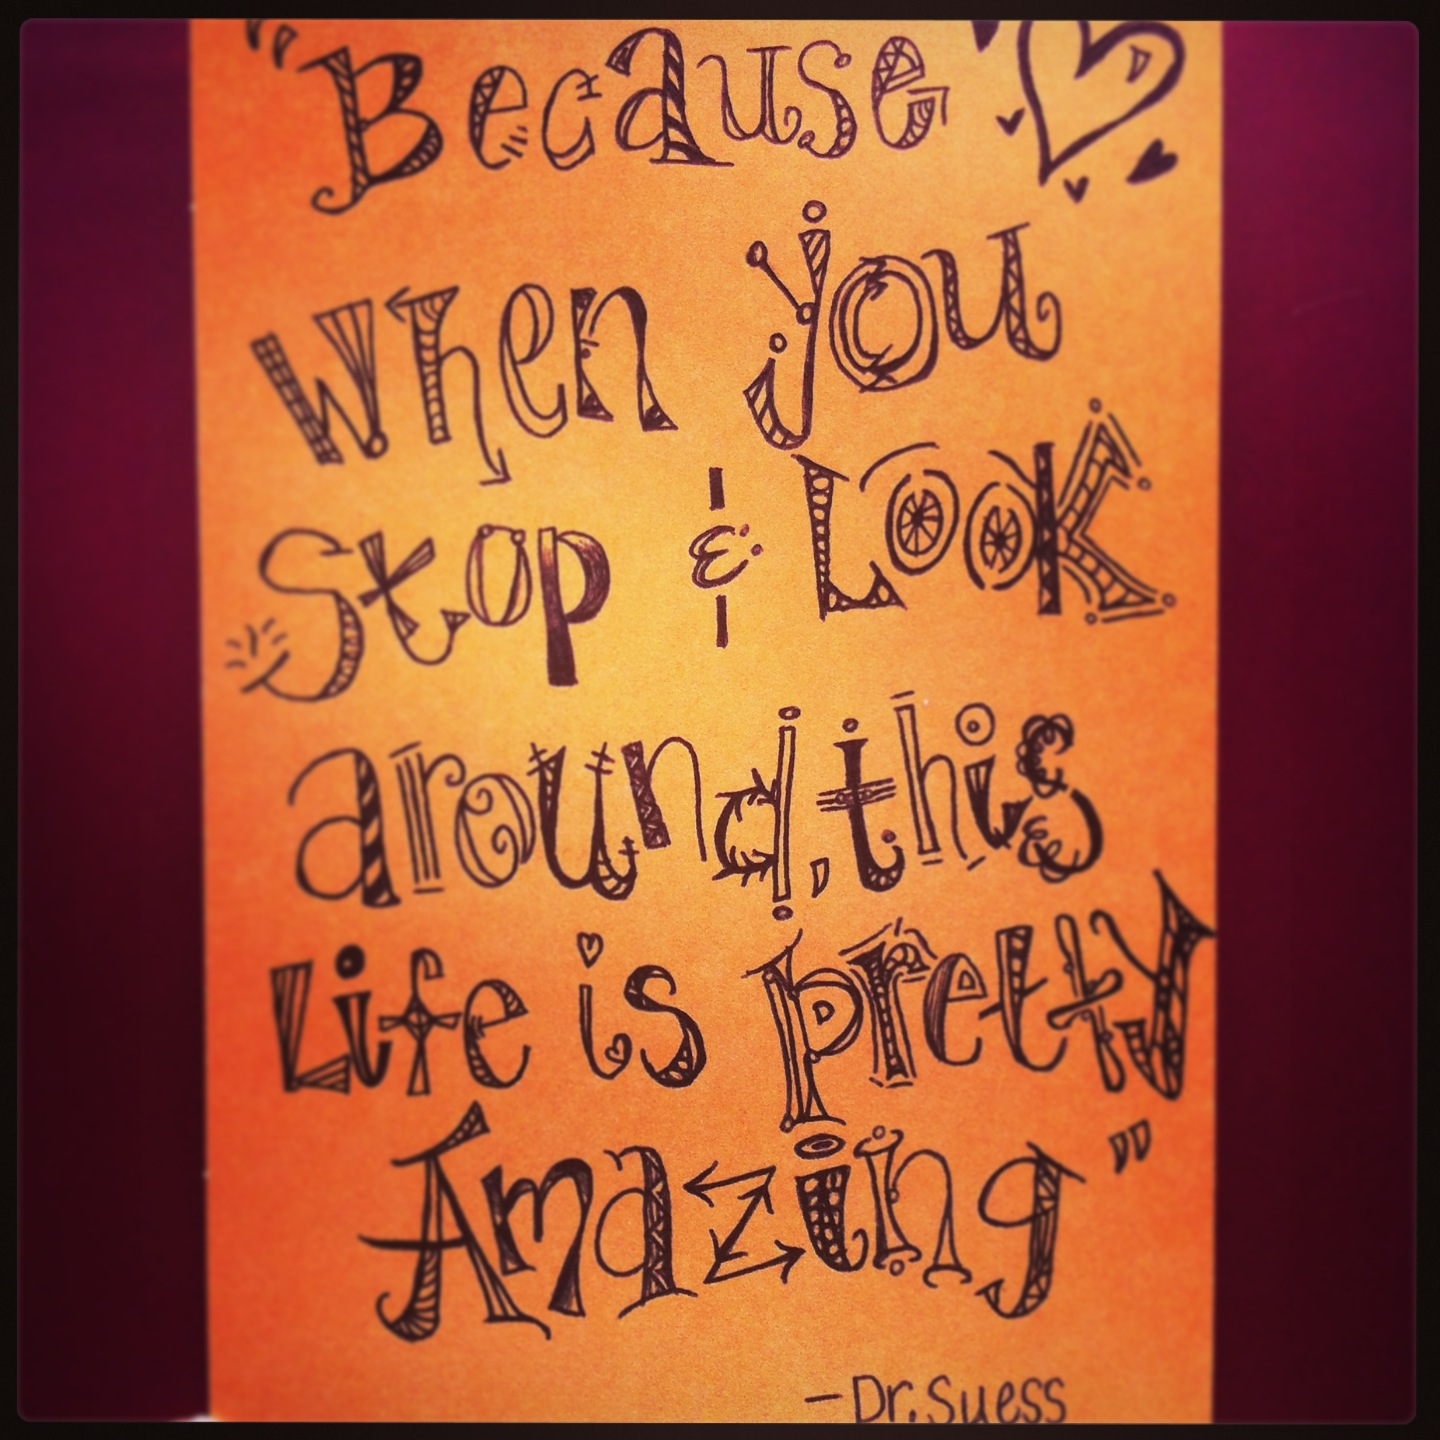 "Because
when you
Stop & Look
around, this
Life is pretty
Amazing"
-Dr. Suess